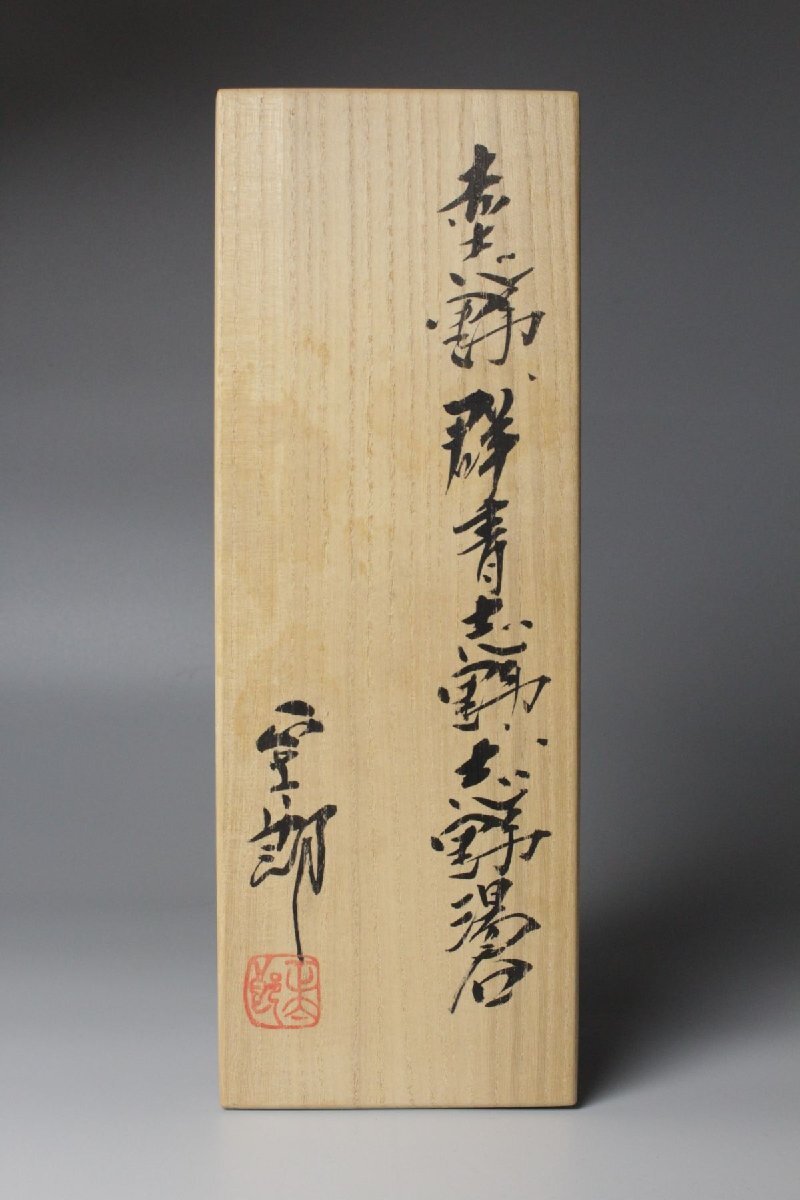 赤志野、群青志野、志野湯呑